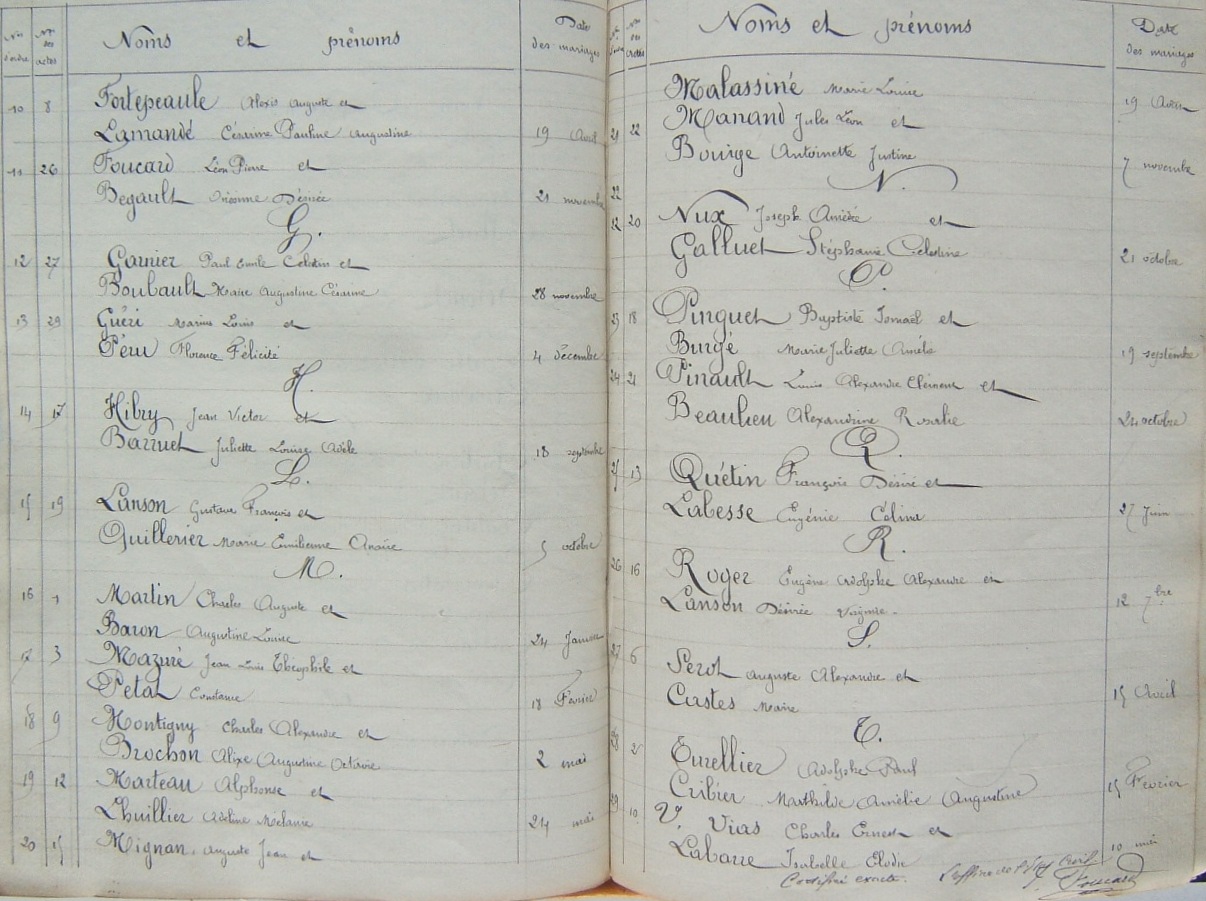 Nos d'ordre Nos des actes Noms et prénoms Date des mariages
10 8 Fortepeaule Alexis Auguste et
Lamandé Césarine Pauline Augustine 19 Avril
11 26 Foucard Léon Pierre et
Begault Désirée 21 novembre
G.
12 27 Garnier Paul Emile Celestin et
Boubault Marie Augustine Césarine 28 novembre
13 29 Guéri Marius Louis et
Péru Florence Félicité 4 décembre
H.
14 17 Hibry Jean Victor et
Barruet Juliette Louise Adèle 18 septembre
L.
15 19 Lanson Gustave François et
Quillerier Marie Emilienne 5 octobre
M.
16 1 Martin Charles Auguste et
Baron Augustine Louise 24 Janvier
17 3 Mazuré Jean Louis Théophile et
Petat Constance 18 Février
18 9 Montigny Charles Alexandre et
Brochon Alixe Augustine Octavie 2 mai
19 12 Marteau Alphonse et
Lhuillier Adeline Mélanie 24 mai
20 15 Mignan Auguste Jean et
Nos d'ordre Nos des actes Noms et prénoms Date des mariages
Malassiné Marie Louise 19 Août
21 22 Manand Jules Léon et
Bouige Antoinette Justine 7 novembre
N.
22
22 20 Nux Joseph Amédée et
Galluet Stéphanie Célestine 21 octobre
P.
23 18 Pinguet Baptiste Ismaël et
Burgé Marie Juliette Amélie 19 septembre
24 21 Pinault Louis Alexandre Clément et
Beaulieu Alexandrine Rosalie 24 octobre
Q.
25 13 Quétin François Désiré et
Labesse Eugénie Célina 27 Juin
R.
26 16 Roger Eugène Adolphe Alexandre et
Lanson Désirée Virginie 12 7bre
S.
27 6 Perot Auguste Alexandre et
Castes Marie 15 Avril
T.
28 2 Turellier Adolphe Paul
Cribier Mathilde Amélie Augustine 15 Février
29 10 V. Vias Charles Ernest et
Labarre Isabelle Elodie 10 mai
Certifié exacte. L'officier de l'état Civil
Foucard